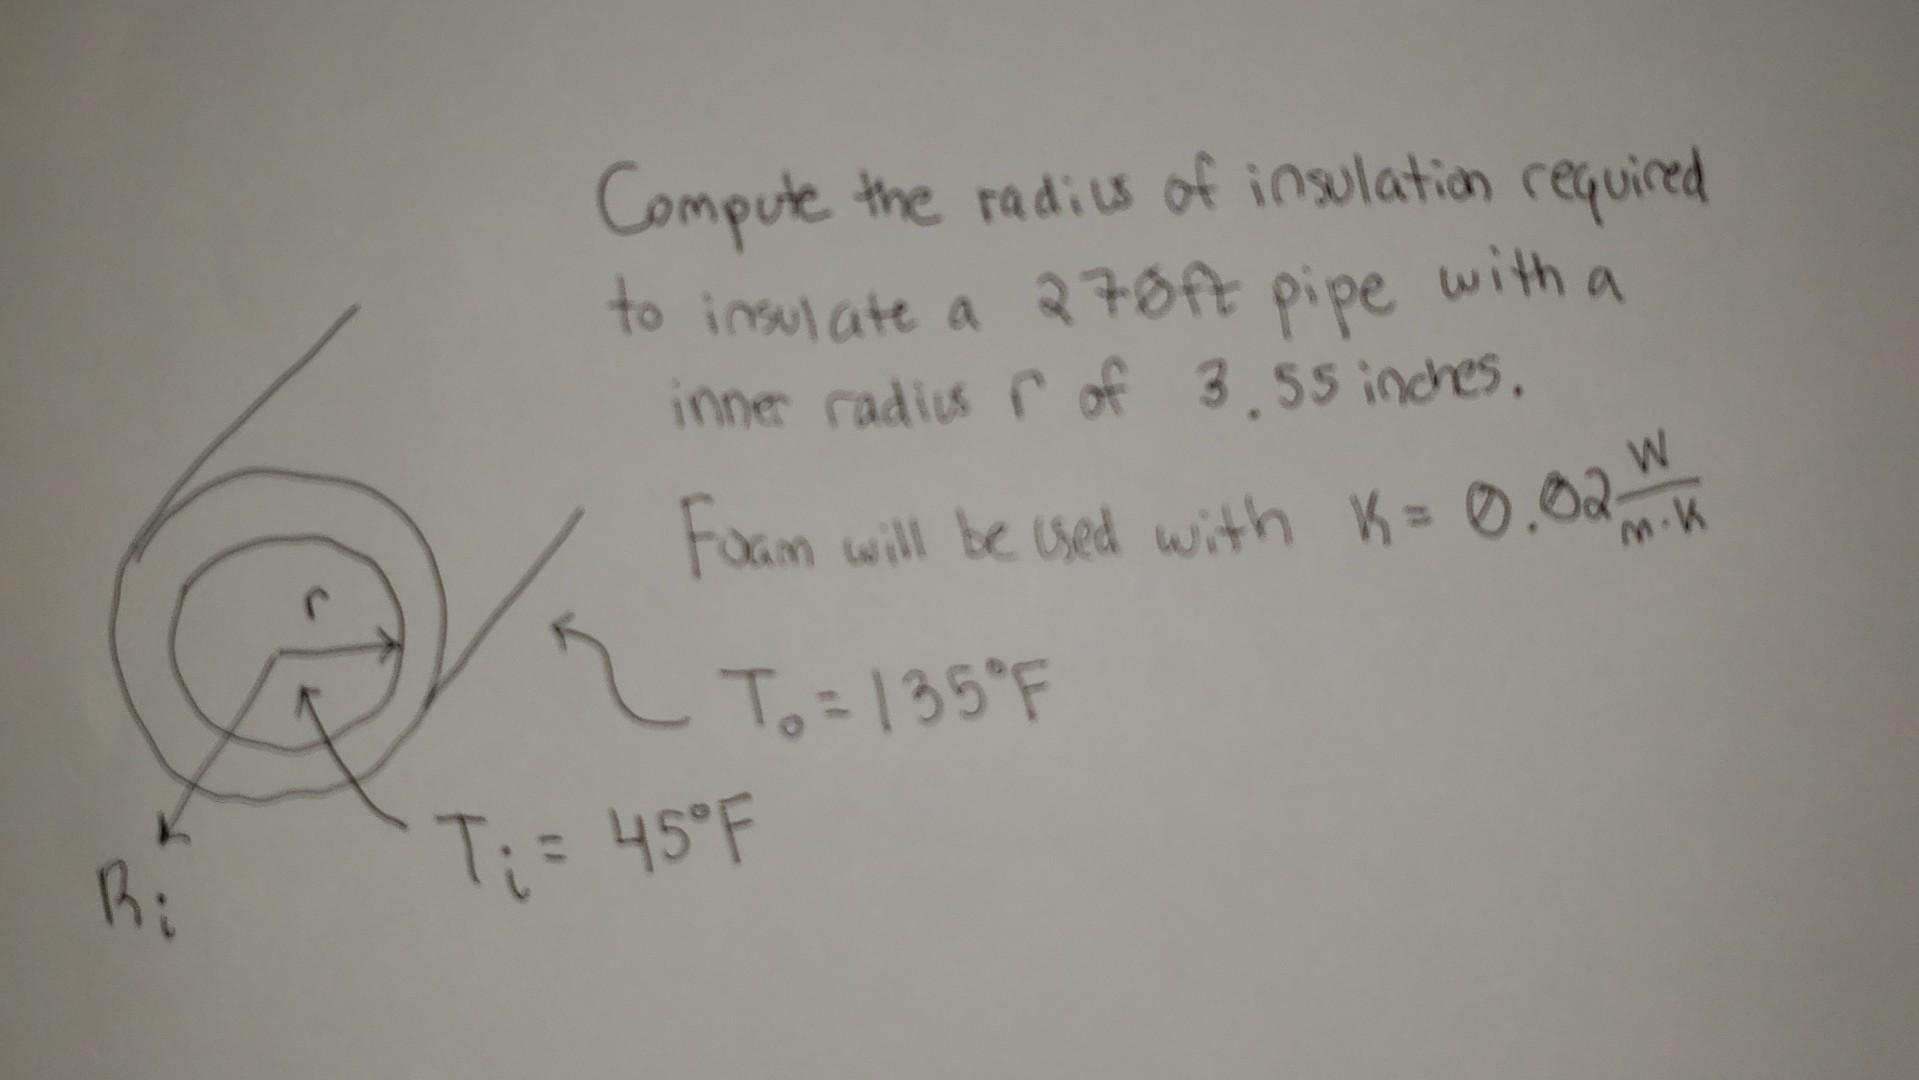 Compute the radius of insulation required
to insulate a 270ft pipe with a
inner radius r of 3.55 inches.
Foam will be used with K = 0.02 W/m·K
r
T₀ = 135°F
Tᵢ = 45°F
Rᵢ